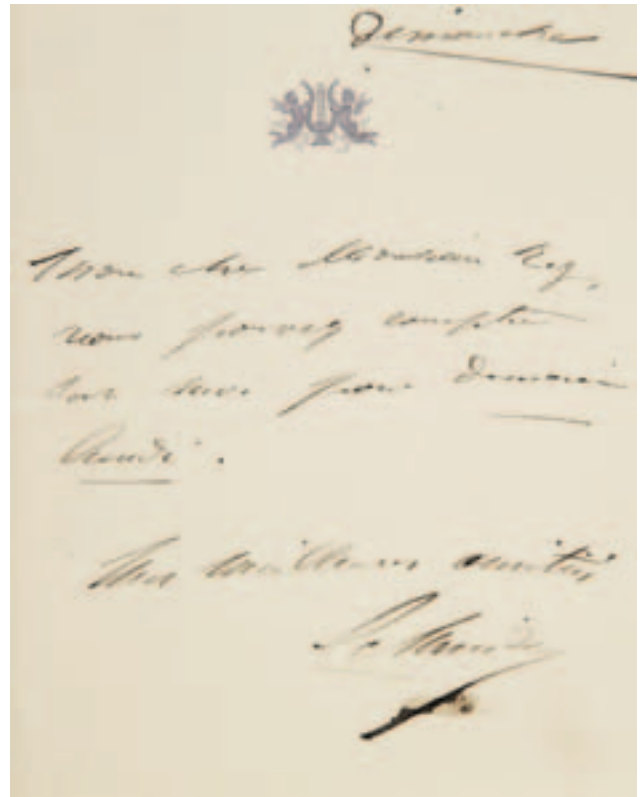 Dimanche
Mon cher Monsieur
vous pouvez compter
sur pour demain
lundi.
Mes meilleures amitiés